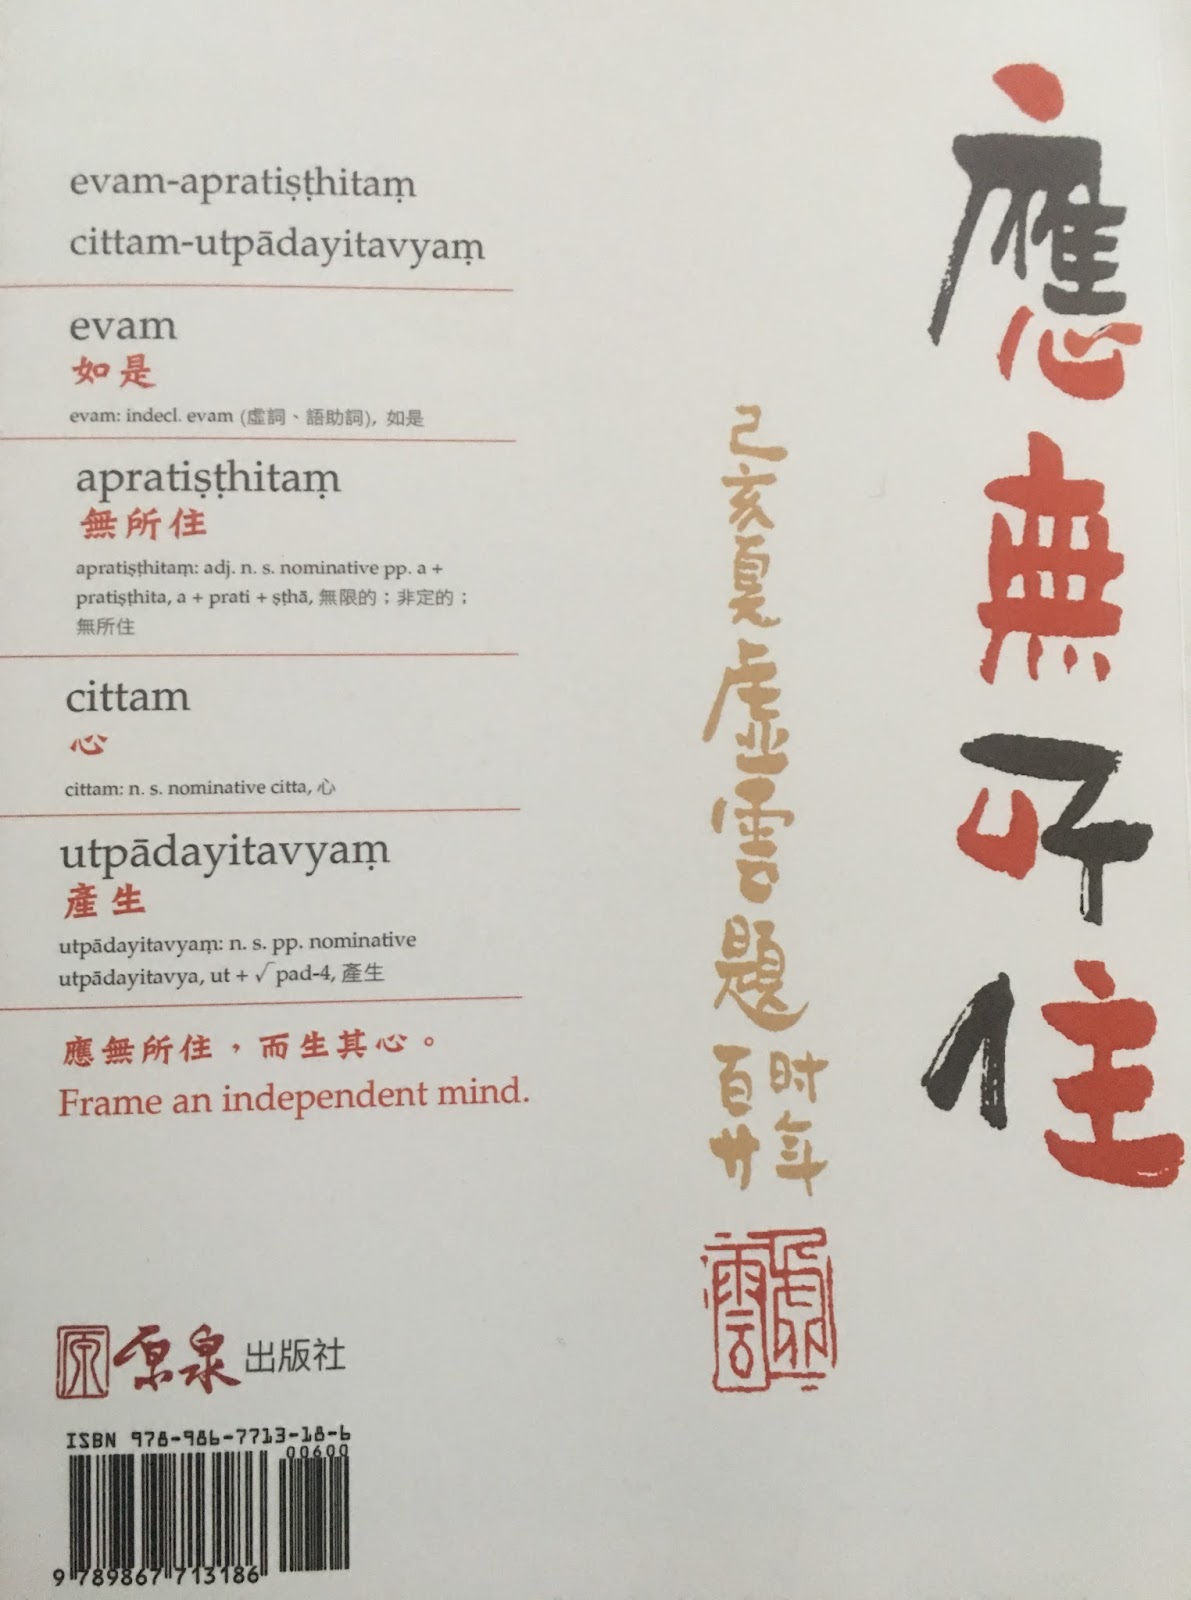 evam-apratiṣṭhitaṃ
cittam-utpādayitavyaṃ
evam
如是
evam: indecl. evam (虛詞、語助詞), 如是
apratiṣṭhitaṃ
無所住
apratiṣṭhitaṃ: adj. n. s. nominative pp. a +
pratiṣṭhita, a + prati + ṣṭhā, 無限的；非定的；
無所住
cittam
心
cittam: n. s. nominative citta, 心
utpādayitavyaṃ
產生
utpādayitavyaṃ: n. s. pp. nominative
utpādayitavya, ut + √pad-4, 產生
應無所住，而生其心。
Frame an independent mind.
應無所住
己亥夏虛雲題
时年
百廿
虛雲
原
原泉出版社
ISBN 978-986-7713-18-6
00600
9 789867 713186